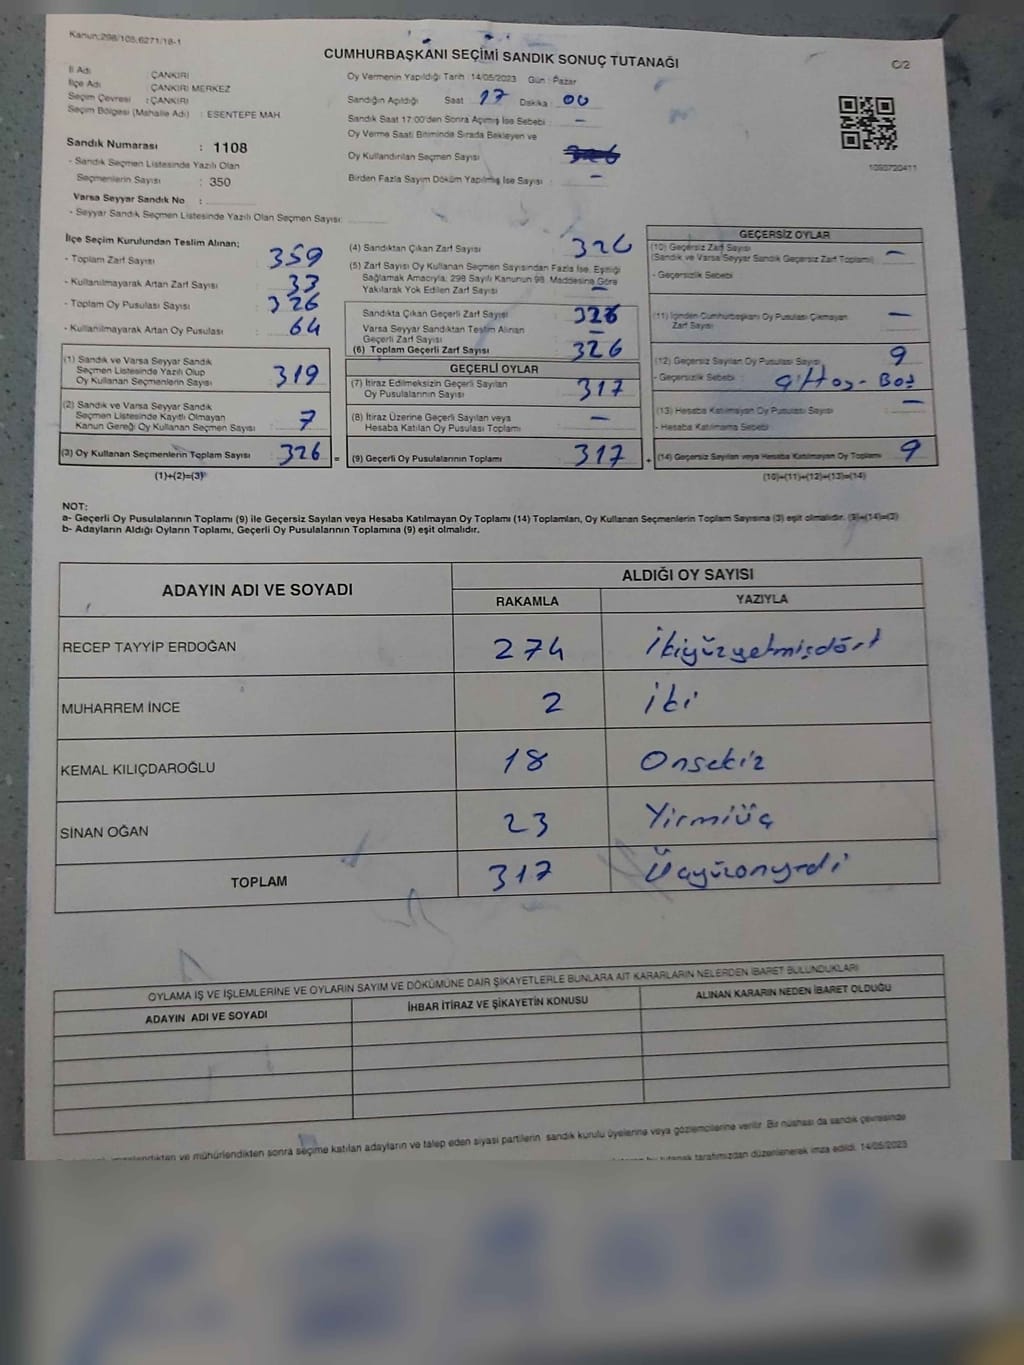 Kanun;298/105,6271/18-1
CUMHURBAŞKANI SEÇİMİ SANDIK SONUÇ TUTANAĞI
C/2
İl Adı : ÇANKIRI
İlçe Adı : ÇANKIRI MERKEZ
Seçim Çevresi : ÇANKIRI
Seçim Bölgesi (Mahalle Adı) : ESENTEPE MAH
Sandık Numarası : 1108
- Sandık Seçmen Listesinde Yazılı Olan
Seçmenlerin Sayısı : 350
Varsa Seyyar Sandık No :
- Seyyar Sandık Seçmen Listesinde Yazılı Olan Seçmen Sayısı:
Oy Vermenin Yapıldığı Tarih : 14/05/2023 Gün : Pazar
Sandığın Açıldığı Saat 17 Dakika : 00
Sandık Saat 17:00'den Sonra Açılmış İse Sebebi : -
Oy Verme Saati Bitiminde Sırada Bekleyen ve
Oy Kullandırılan Seçmen Sayısı
Birden Fazla Sayım Döküm Yapılmış İse Sayısı : -
1093720411
İlçe Seçim Kurulundan Teslim Alınan;
- Toplam Zarf Sayısı : 359
- Kullanılmayarak Artan Zarf Sayısı : 33
- Toplam Oy Pusulası Sayısı : 326
- Kullanılmayarak Artan Oy Pusulası : 64
(1) Sandık ve Varsa Seyyar Sandık
Seçmen Listesinde Yazılı Olup
Oy Kullanan Seçmenlerin Sayısı : 319
(2) Sandık ve Varsa Seyyar Sandık
Seçmen Listesinde Kayıtlı Olmayan
Kanun Gereği Oy Kullanan Seçmen Sayısı : 7
(3) Oy Kullanan Seçmenlerin Toplam Sayısı : 326 =
(1)+(2)=(3)
(4) Sandıktan Çıkan Zarf Sayısı : 326
(5) Zarf Sayısı Oy Kullanan Seçmen Sayısından Fazla İse, Eşitliği
Sağlamak Amacıyla; 298 Sayılı Kanunun 98. Maddesine Göre
Yakılarak Yok Edilen Zarf Sayısı : -
Sandıkta Çıkan Geçerli Zarf Sayısı : 326
Varsa Seyyar Sandıktan Teslim Alınan
Geçerli Zarf Sayısı : -
(6) Toplam Geçerli Zarf Sayısı : 326
GEÇERLİ OYLAR
(7) İtiraz Edilmeksizin Geçerli Sayılan
Oy Pusulalarının Sayısı : 317
(8) İtiraz Üzerine Geçerli Sayılan veya
Hesaba Katılan Oy Pusulası Toplamı : -
(9) Geçerli Oy Pusulalarının Toplamı : 317 +
GEÇERSİZ OYLAR
(10) Geçersiz Zarf Sayısı
(Sandık ve Varsa Seyyar Sandık Geçersiz Zarf Toplamı) : -
- Geçersizlik Sebebi
(11) İçinden Cumhurbaşkanı Oy Pusulası Çıkmayan
Zarf Sayısı : -
(12) Geçersiz Sayılan Oy Pusulası Sayısı : 9
- Geçersizlik Sebebi :
(13) Hesaba Katılmayan Oy Pusulası Sayısı : -
- Hesaba Katılmama Sebebi
(14) Geçersiz Sayılan veya Hesaba Katılmayan Oy Toplamı : 9
(10)+(11)+(12)+(13)=(14)
NOT:
a- Geçerli Oy Pusulalarının Toplamı (9) ile Geçersiz Sayılan veya Hesaba Katılmayan Oy Toplamı (14) Toplamları, Oy Kullanan Seçmenlerin Toplam Sayısına (3) eşit olmalıdır. (9)+(14)=(3)
b- Adayların Aldığı Oyların Toplamı, Geçerli Oy Pusulalarının Toplamına (9) eşit olmalıdır.
ADAYIN ADI VE SOYADI
ALDIĞI OY SAYISI
RAKAMLA YAZIYLA
RECEP TAYYİP ERDOĞAN 274 İkiyüzyetmişdört
MUHARREM İNCE 2 İki
KEMAL KILIÇDAROĞLU 18 Onsekiz
SİNAN OĞAN 23 Yirmiüç
TOPLAM 317 Üçyüzonyedi
OYLAMA İŞ VE İŞLEMLERİNE VE OYLARIN SAYIM VE DÖKÜMÜNE DAİR ŞİKAYETLERLE BUNLARA AİT KARARLARIN NELERDEN İBARET BULUNDUKLARI
ADAYIN ADI VE SOYADI İHBAR İTİRAZ VE ŞİKAYETİN KONUSU ALINAN KARARIN NEDEN İBARET OLDUĞU
ve mühürlendikten sonra seçime katılan adayların ve talep eden siyasi partilerin sandık kurulu üyelerine veya gözlemcilerine verilir. Bir nüshası da sandık çevresinde
bu tutanak tarafımızdan düzenlenerek imza edildi. 14/05/2023